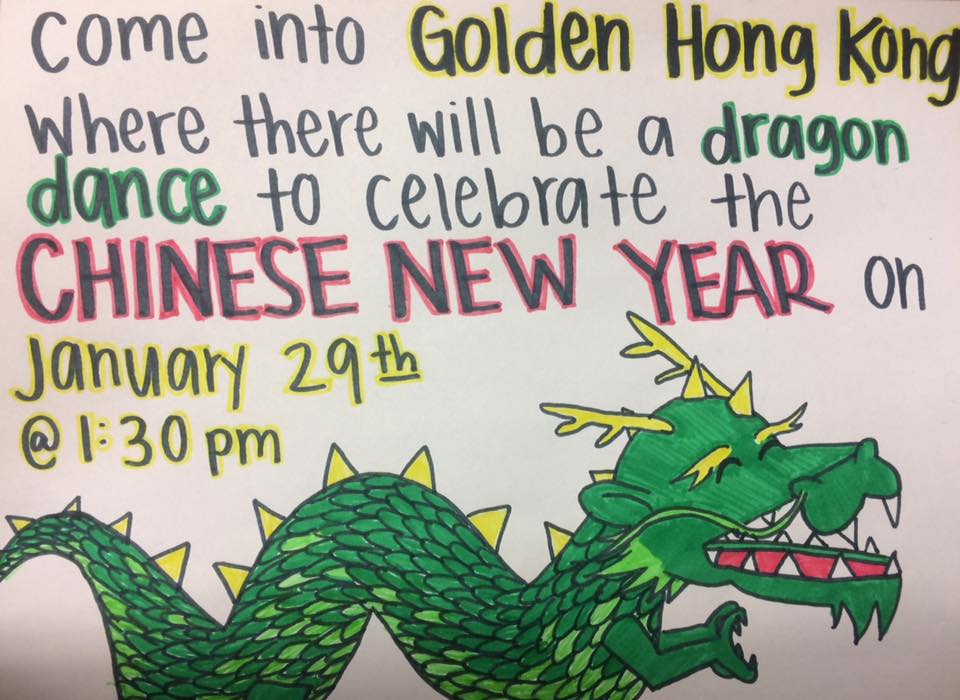 come into Golden Hong Kong
where there will be a dragon
dance to celebrate the
CHINESE NEW YEAR on
January 29th
@ 1:30 pm